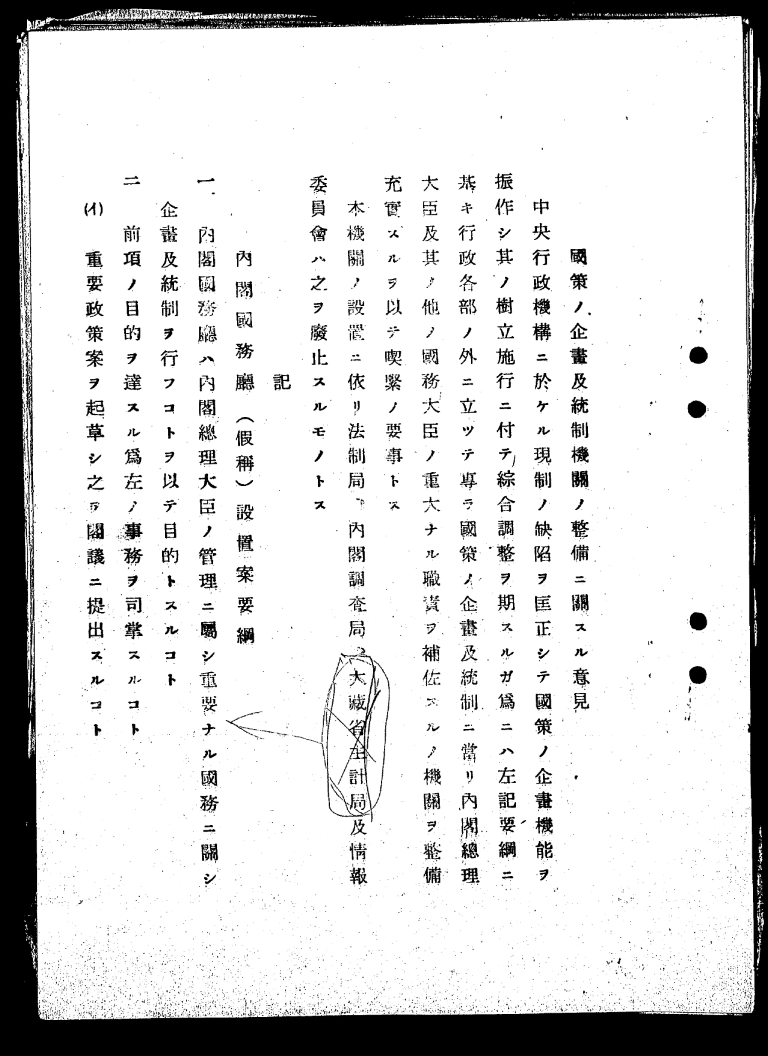 國策ノ企畫及統制機關ノ整備ニ關スル意見
中央行政機構ニ於ケル現制ノ缺陷ヲ匡正シテ國策ノ企畫機能ヲ
振作シ其ノ樹立施行ニ付テ綜合調整ヲ期スルガ爲ニハ左記要綱ニ
基キ行政各部ノ外ニ立ツテ專ラ國策ノ企畫及統制ニ當リ內閣總理
大臣及其ノ他ノ國務大臣ノ重大ナル職責ヲ補佐スルノ機關ヲ整備
充實スルヲ以テ喫緊ノ要事トス
本機關ノ設置ニ依リ法制局、內閣調査局、大藏省主計局及情報
委員會ハ之ヲ廢止スルモノトス
記
內閣國務廳(假稱)設置案要綱
一、內閣國務廳ハ內閣總理大臣ノ管理ニ屬シ重要ナル國務ニ關シ
企畫及統制ヲ行フコトヲ以テ目的トスルコト
二 前項ノ目的ヲ達スル爲左ノ事務ヲ司掌スルコト
(イ) 重要政策案ヲ起草シ之ヲ閣議ニ提出スルコト